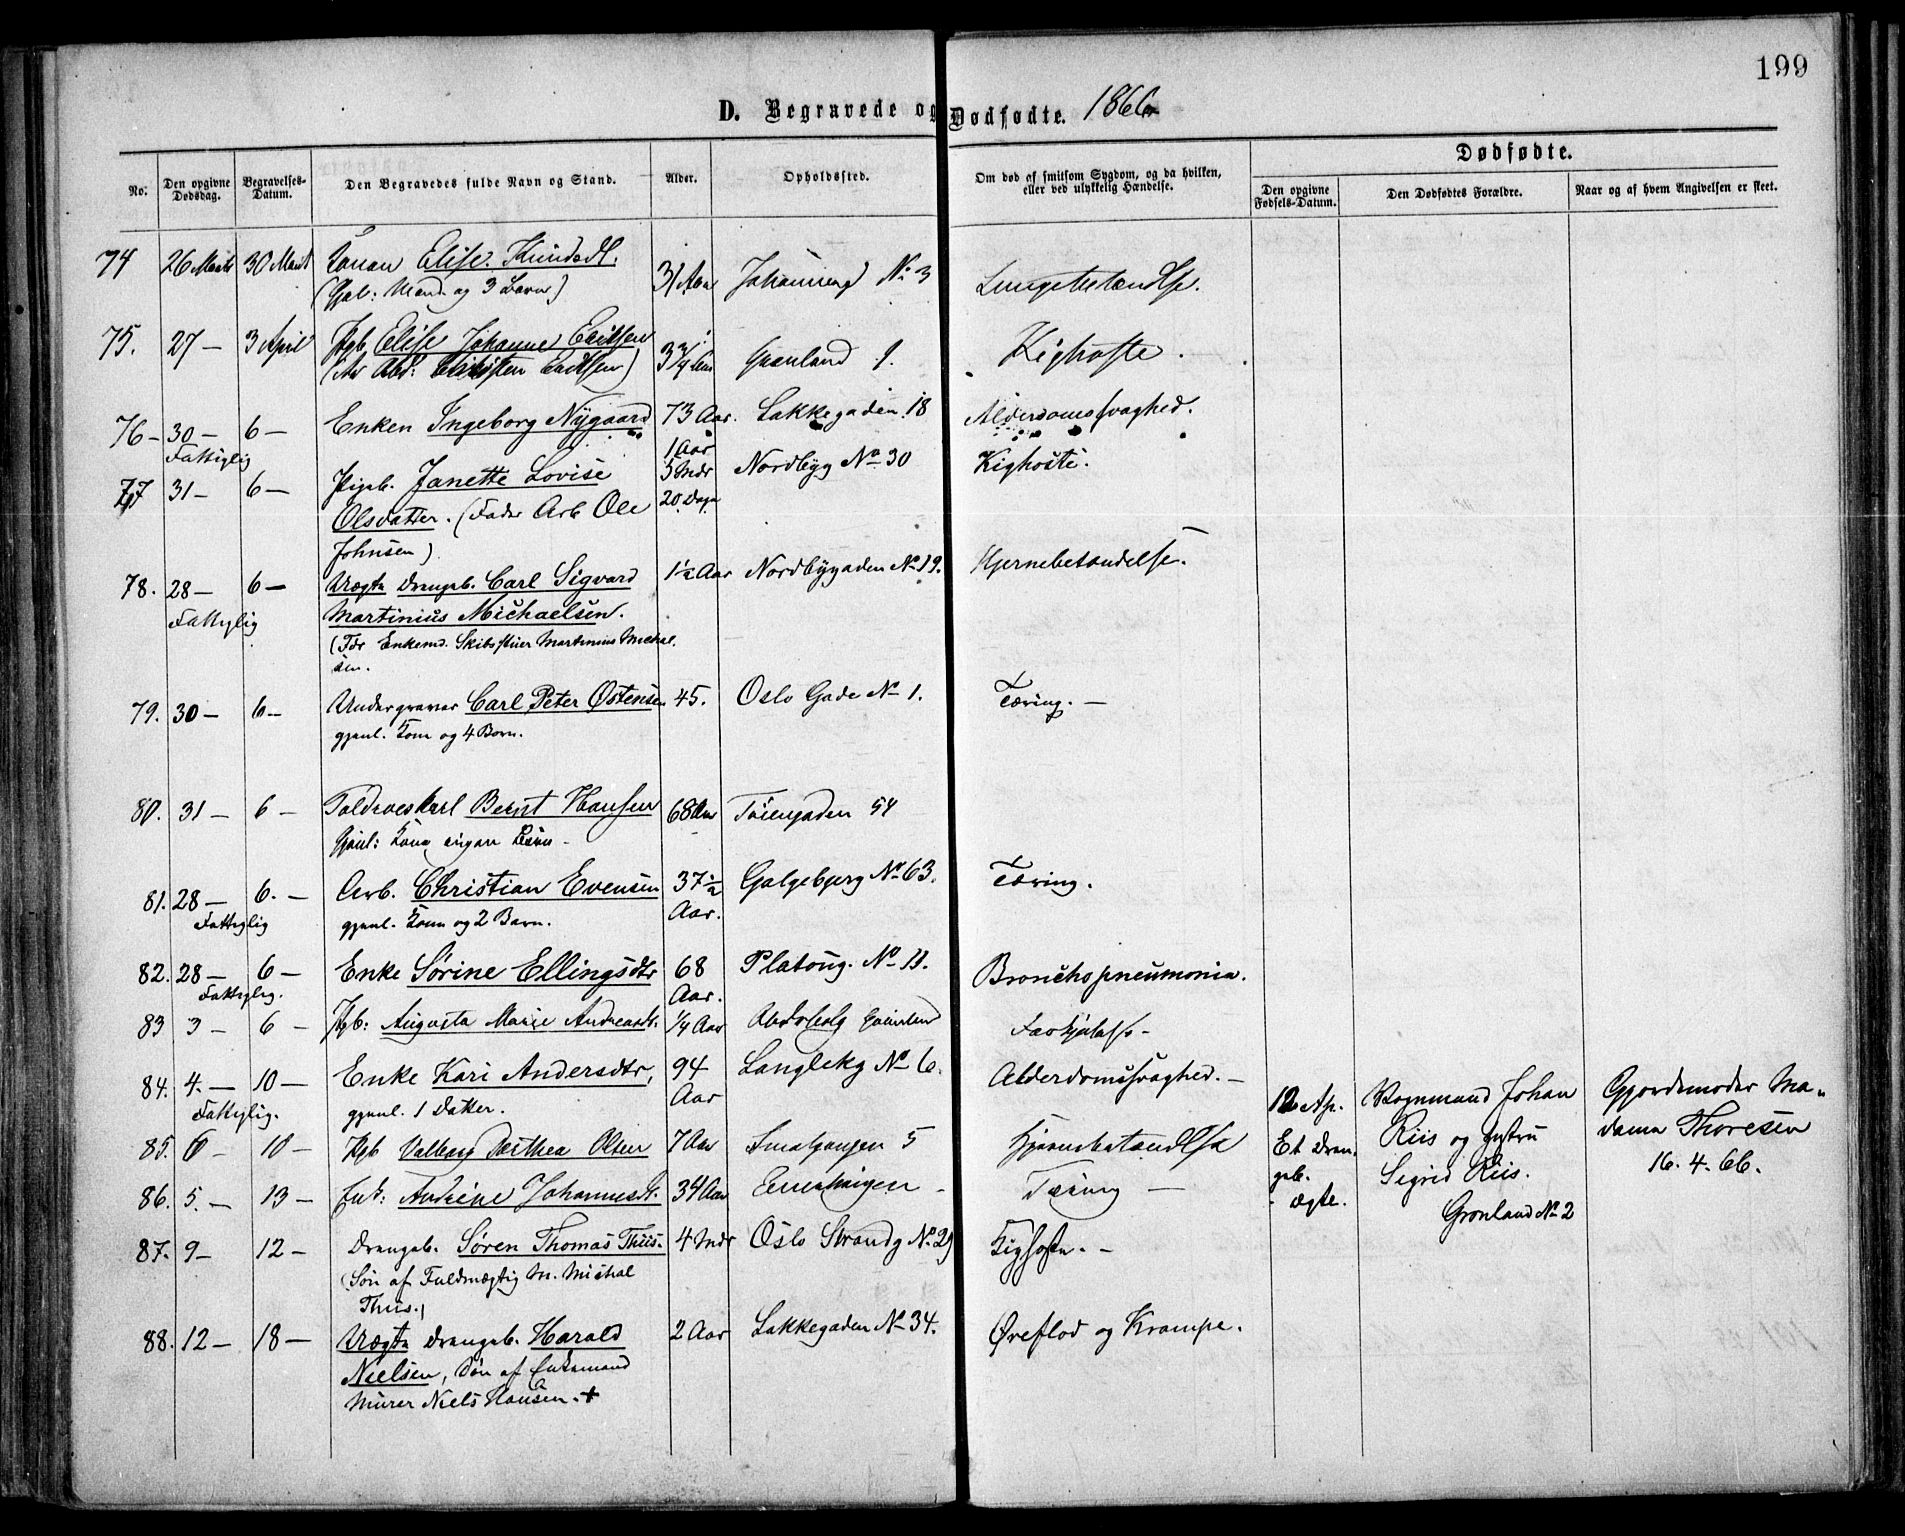 199
D. Begravede og Dødfødte. 1866
Dødfødte.
No.
Den opgivne Dødsdag.
Begravelses-Datum.
Den Begravedes fulde Navn og Stand.
Alder.
Opholdssted.
Om død af smitsom Sygdom, og da hvilken,
eller ved ulykkelig Hændelse.
Den opgivne Fødsels-Datum.
Den Dødfødtes Forældre.
Naar og af hvem Angivelsen er skeet.
74 26 Marts 30 Marts Konen Elise Knudsd. 31 Aar No 3 Lungebetændelse.
(Gjenl: Mand og 3 Børn)
75. 27 — 3 April Pgb Elise Johanne Erichsen 3 3/4 Aar Grønland 9. Kighoste.
(Far Arb: Christen Erichsen)
76 – 30 – 6 – Enken Ingeborg Nygaard 73 Aar. Lakkegaden 18 Alderdomssvaghed.
Fattiglig
77 31 – 6 – Pigeb. Janette Lovise 1 Aar 3 Mdr 20 Dage Nordbyg No 30 Kighoste.
Olsdatter. (Fader Arb Ole
Johnsen)
78. 28 – 6 – Uægte Drengeb. Carl Sigvard 1 1/2 Aar Nordbygaden No 19. Hjernebetændelse.
Fattiglig Martinius Michaelsen.
(Far Enkemd. Skibstüer Martinius Michal
sen.
79. 30 – 6 – Undergraver Carl Peter Østensen 45. Oslo Gade No 1. Tæring. –
gjenl. Kone og 4 Børn.
80. 31 – 6 – Toldroeskarl Bernt Hansen 68 Aar Tøiengaden 54
Gjenl: Kone ingen Børn –
81. 28 – 6. – Arb. Christian Evensen 37 1/2 Aar. Galgebjerg No 63. Tæring.
Fattiglig gjenl. Kone og 2 Børn.
82. 28 – 6 – Enke Sørine Ellingsdtr 68 Aar. Platoug. No 11. Bronchopneumonia.
Fattiglig.
83 3 – 6 – Pgb: Augusta Marie Andreasdt. 1/4 Aar
84. 4. – 10 – Enke Kari Andersdtr, 94 Aar Langlekg No 6. Alderdomssvaghed. –
Fattiglig. gjenl. 1 Datter.
85. 6 – 10 – Pgb Valborg Dorthea Olsen 7 Aar Smalgangen 5 Hjernebetændelse
86. 5. – 13 – Enk: Andrine Johannesdt. 34 Aar Enerhaugen – Tæring –
87. 9 – 12 – Drengeb. Søren Thomas Thiis. 4 Mdr Oslo Strandg No 29 Kighoste. –
(Søn af Fuldmægtig M. Michal
Thiis.)
88. 12 – 18 – Uægte Drengeb. Harald 2 Aar Lakkegaden No 34. Øreflod og Krampe.
Nielsen, Søn af Enkemand
Murer Niels Hansen. +
12 Ap. Vognmand Johan Gjordemoder Ma-
Et Dren- Riis og Hustru dame Thoresen
geb. Sigrid Riis. 16. 4. 66.
ægte. Grønland No 2